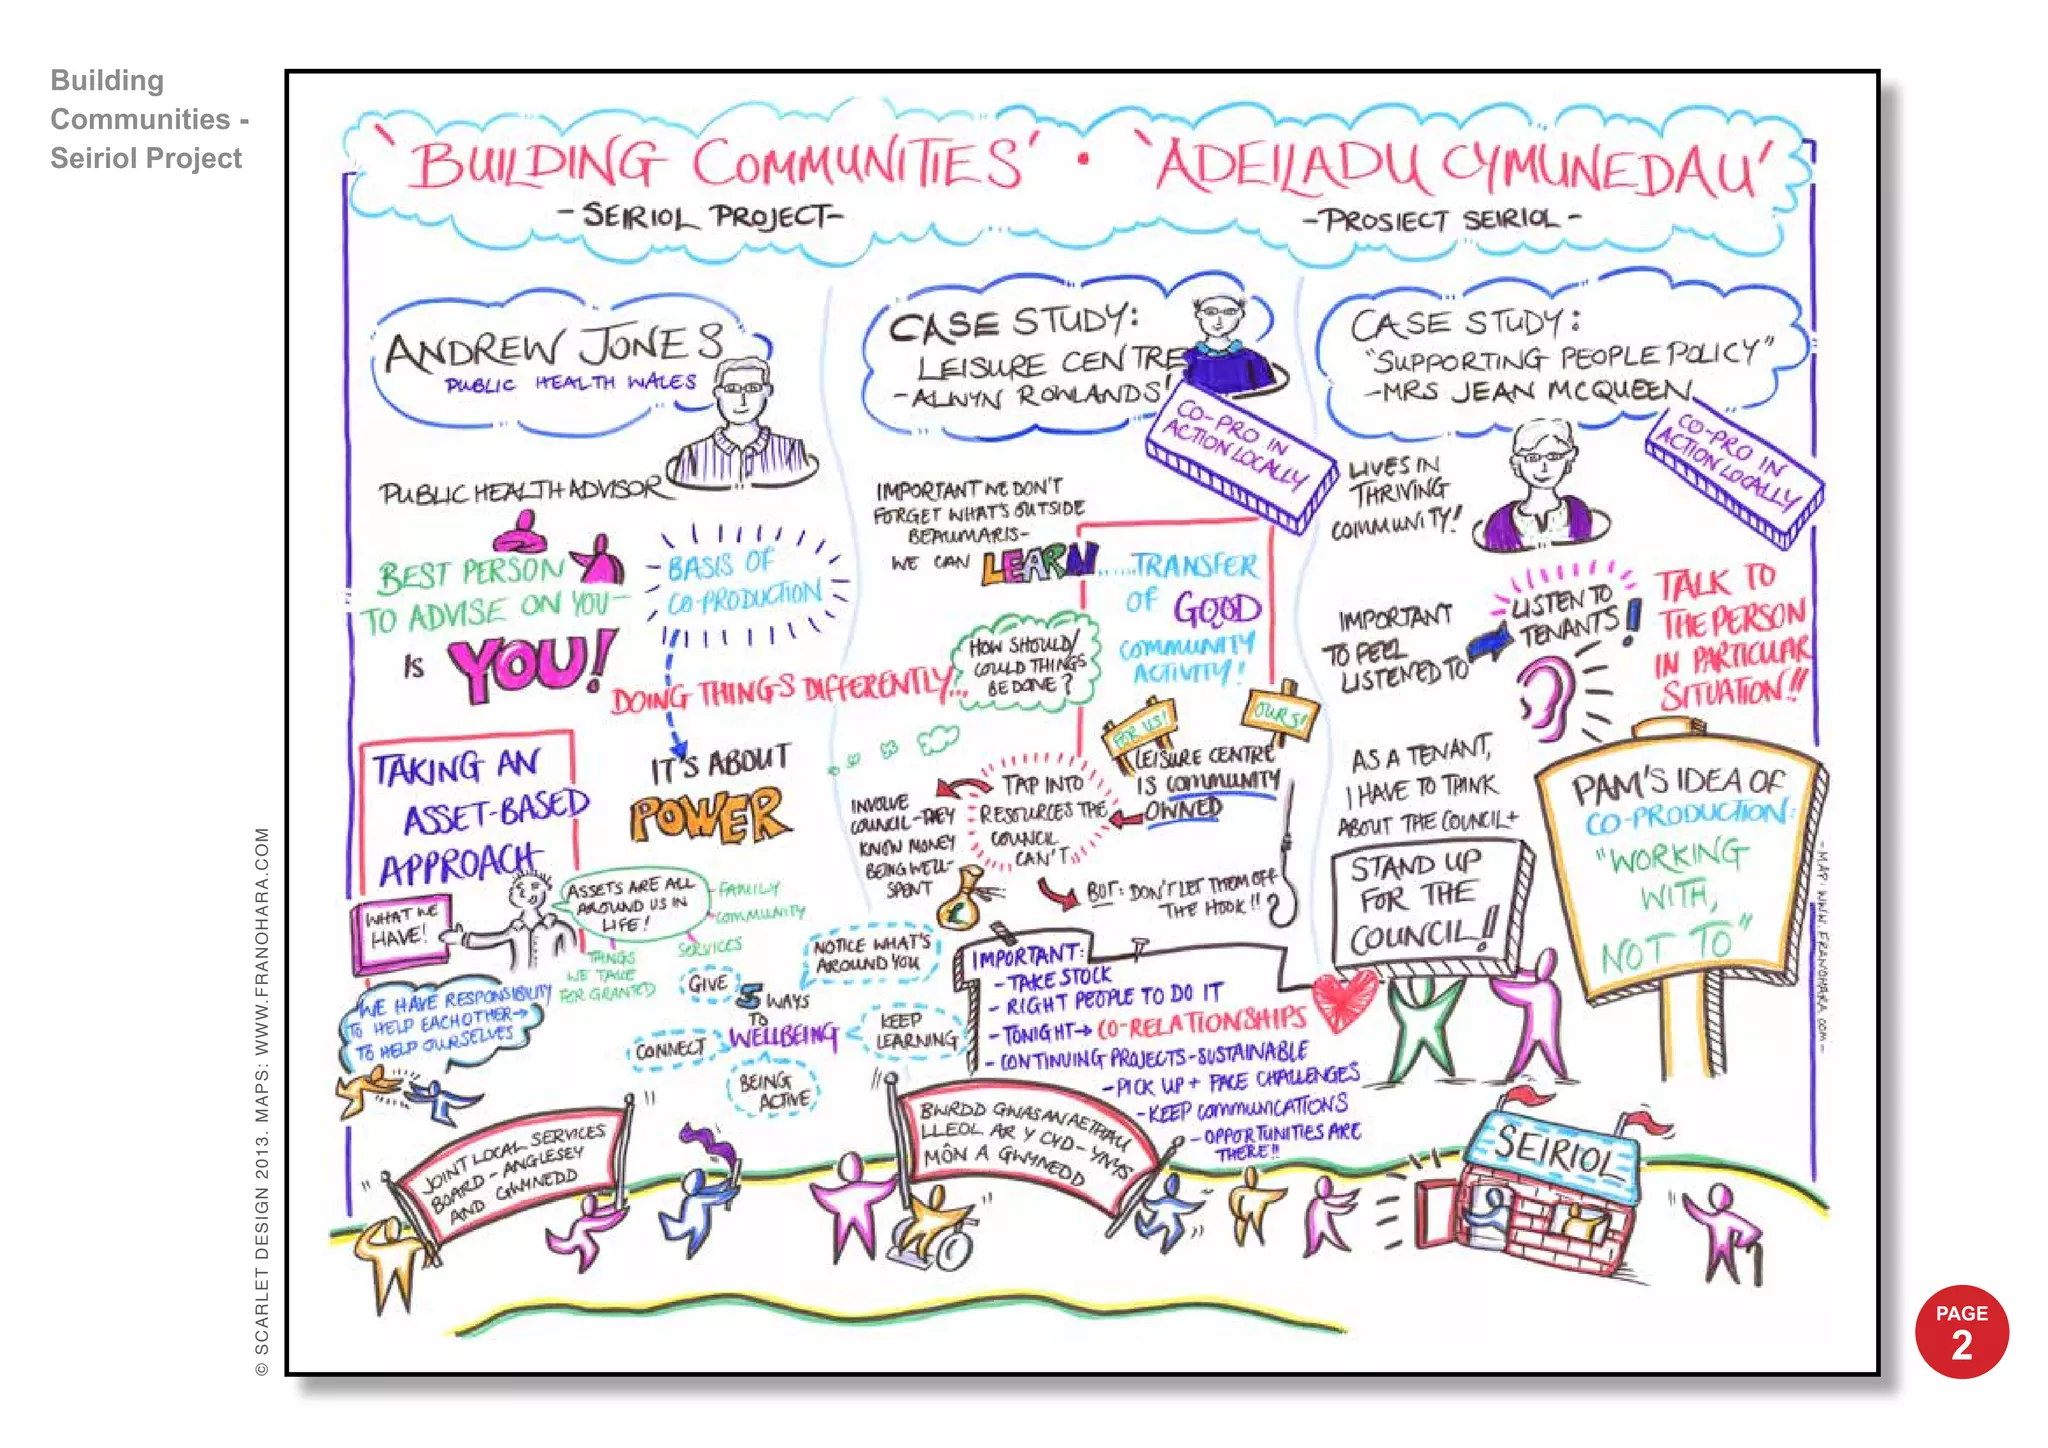 Building
Communities -
Seiriol Project
'BUILDING COMMUNITIES' • 'ADEILADU CYMUNEDAU'
-SEIRIOL PROJECT-
-PROSIECT SEIRIOL-
ANDREW JONES
PUBLIC HEALTH WALES
PUBLIC HEALTH ADVISOR
BEST PERSON
TO ADVISE ON YOU-
IS YOU!
BASIS OF
CO-PRODUCTION
DOING THINGS DIFFERENTLY...
HOW SHOULD/
COULD THINGS
BE DONE?
IT'S ABOUT
POWER
TAKING AN
ASSET-BASED
APPROACH
WHAT WE
HAVE!
ASSETS ARE ALL
AROUND US IN
LIFE!
-FAMILY
COMMUNITY
SERVICES
THINGS
WE TAKE
FOR GRANTED
WE HAVE RESPONSIBILITY
TO HELP EACHOTHER→
TO HELP OURSELVES
5 WAYS
TO
WELLBEING
GIVE
NOTICE WHAT'S
AROUND YOU
KEEP
LEARNING
BEING
ACTIVE
CONNECT
CASE STUDY:
LEISURE CENTRE
-ALWYN ROWLANDS'
CO-PRO IN
ACTION LOCALLY
IMPORTANT WE DON'T
FORGET WHAT'S OUTSIDE
BEAUMARIS-
WE CAN LEARN
......TRANSFER
OF GOOD
COMMUNITY
ACTIVITY!
FOR US!
OURS!
LEISURE CENTRE
IS COMMUNITY
OWNED
TAP INTO
RESOURCES THE
COUNCIL
CAN'T
INVOLVE
COUNCIL-THEY
KNOW MONEY
BEING WELL-
SPENT
£
BUT: DON'T LET THEM OFF
THE HOOK!!
IMPORTANT:
-TAKE STOCK
-RIGHT PEOPLE TO DO IT
-TONIGHT→ CO-RELATIONSHIPS
-CONTINUING PROJECTS-SUSTAINABLE
-PICK UP + FACE CHALLENGES
-KEEP COMMUNICATIONS
-OPPORTUNITIES ARE
THERE!!
CASE STUDY:
"SUPPORTING PEOPLE POLICY"
-MRS JEAN MCQUEEN
CO-PRO IN
ACTION LOCALLY
LIVES IN
THRIVING
COMMUNITY!
IMPORTANT
TO FEEL
LISTENED TO
LISTEN TO
TENANTS!
TALK TO
THE PERSON
IN PARTICULAR
SITUATION!!
AS A TENANT,
I HAVE TO THINK
ABOUT THE COUNCIL+
STAND UP
FOR THE
COUNCIL!!
PAM'S IDEA OF
CO-PRODUCTION:
"WORKING
WITH,
NOT TO"
-MAP: WWW.FRANOHARA.COM-
JOINT LOCAL SERVICES
BOARD-ANGLESEY
AND GWYNEDD
BWRDD GWASANAETHAU
LLEOL AR Y CYD-YNYS
MÔN A GWYNEDD
SEIRIOL
© SCARLET DESIGN 2013. MAPS: WWW.FRANOHARA.COM
PAGE
2